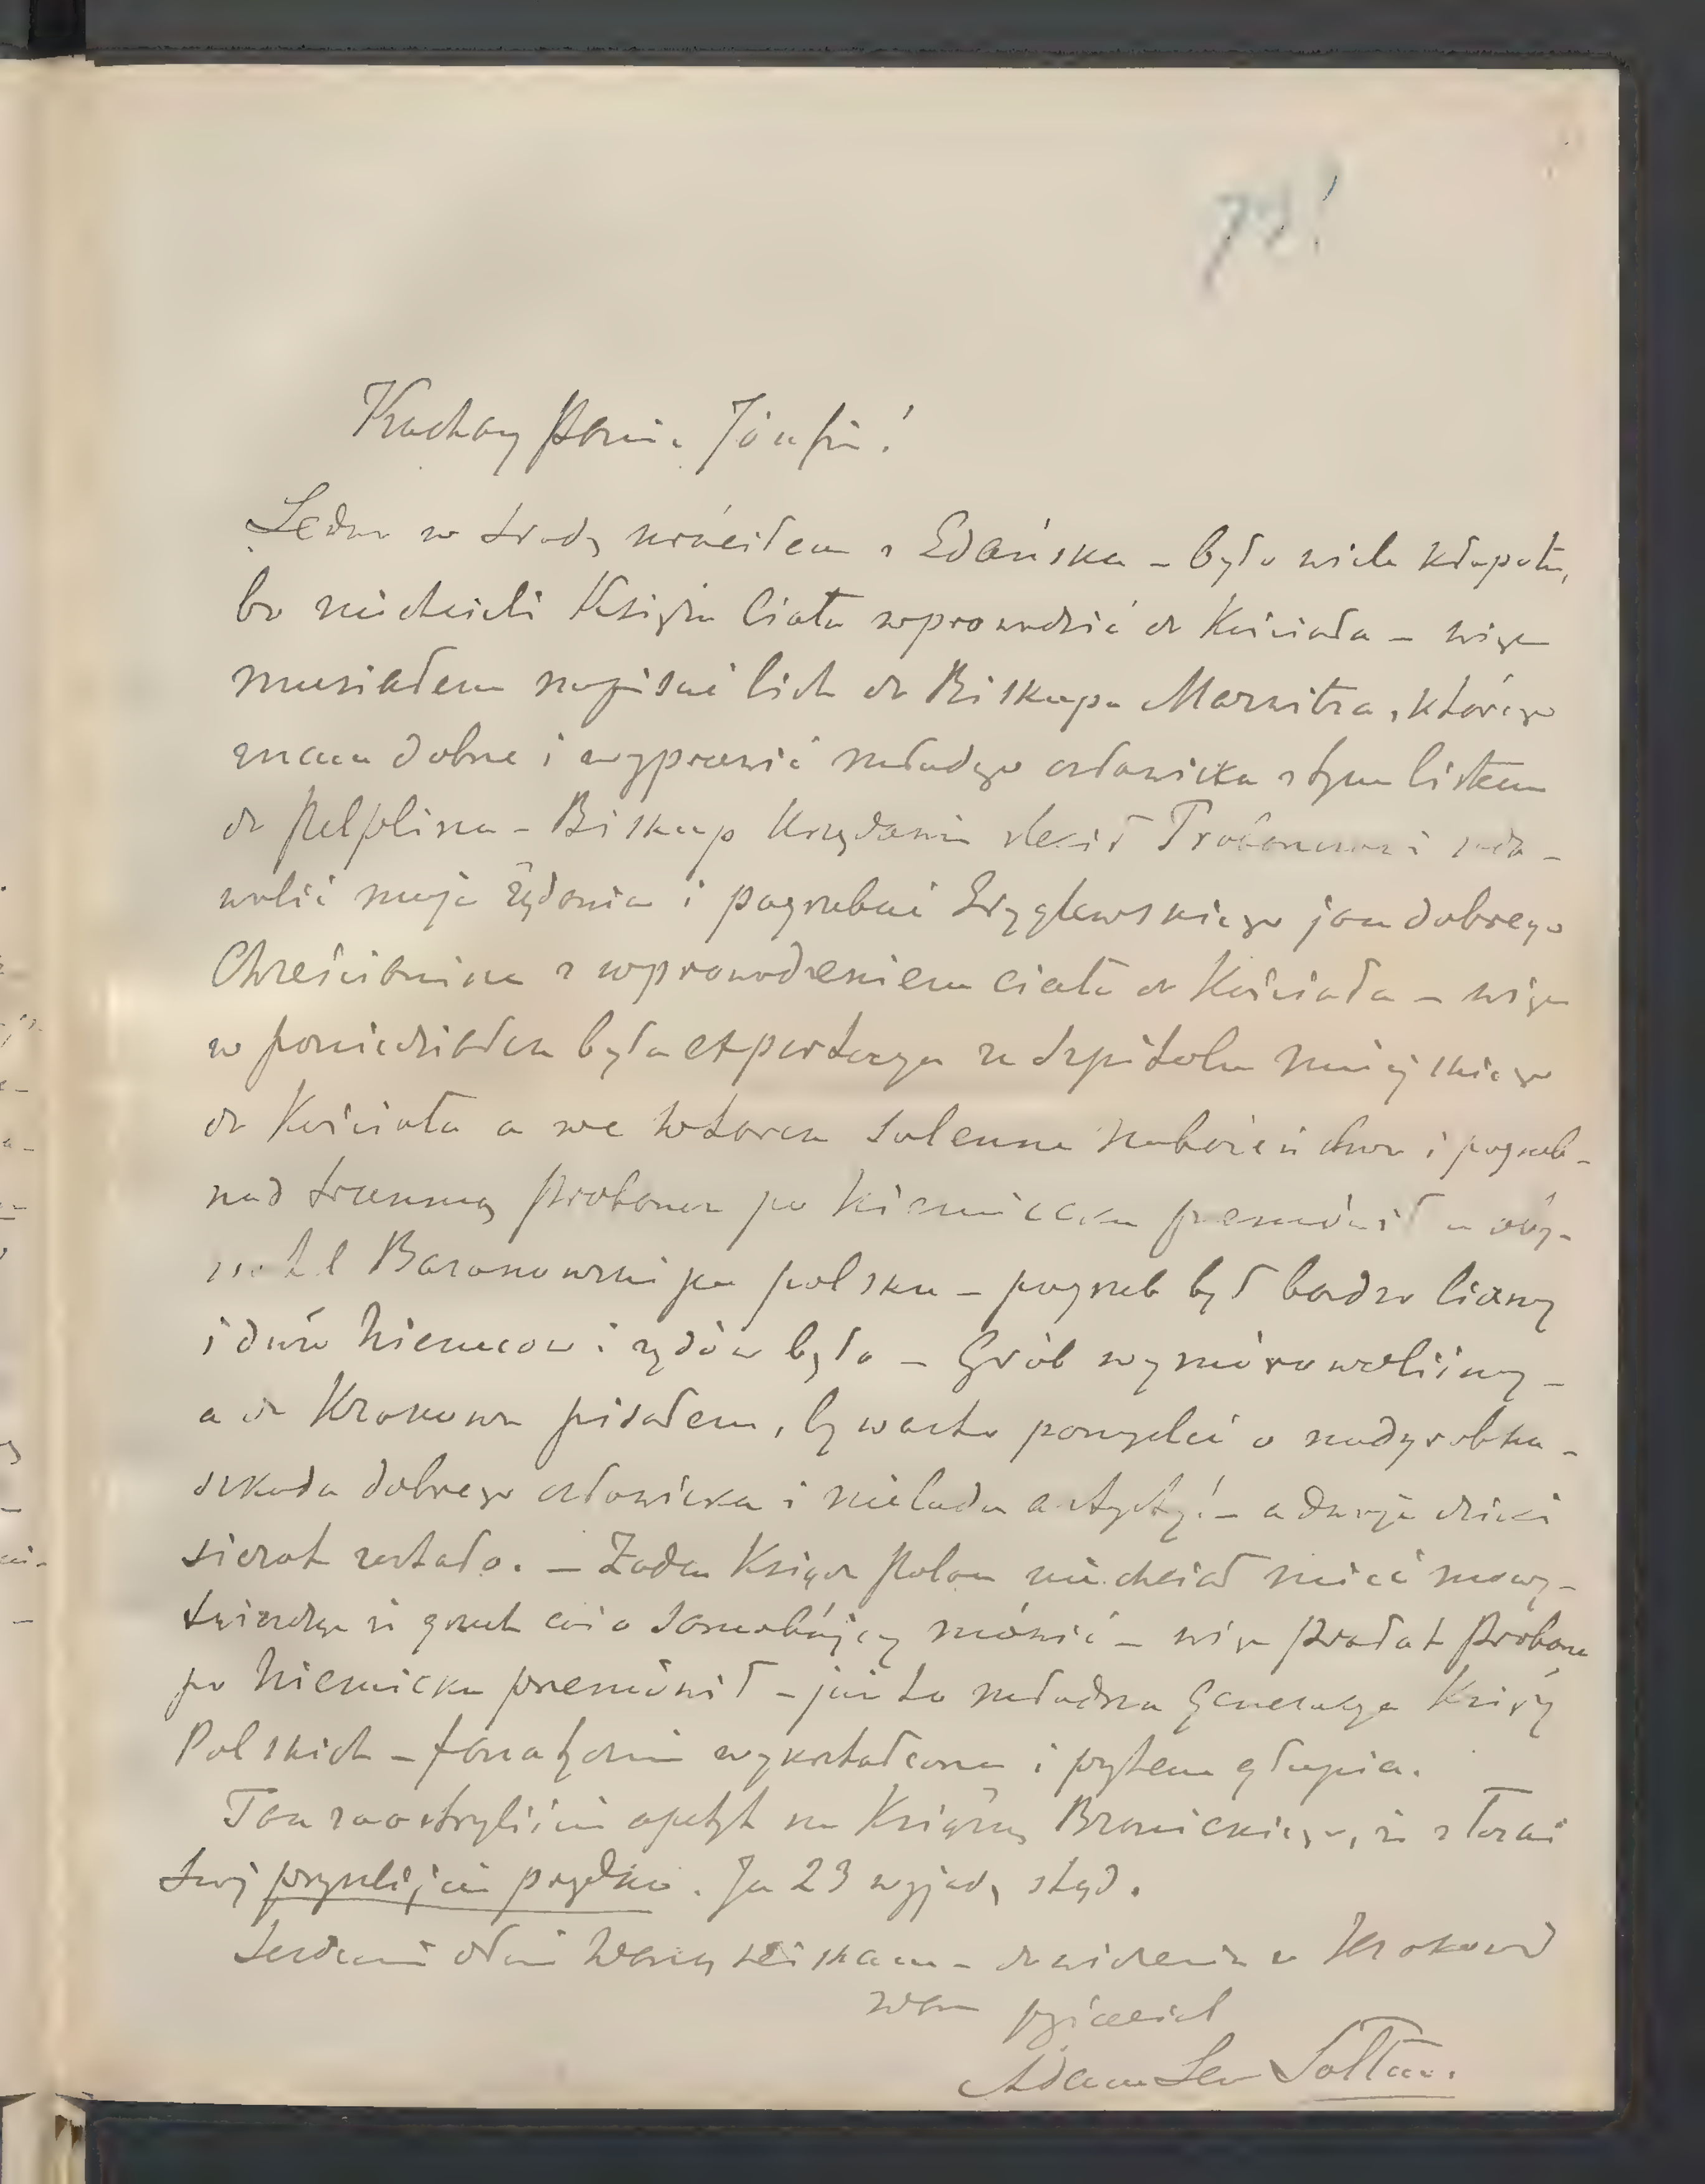 78!
Kochany Panie Józefie!
Ledwo w środę wróciłem z Gdańska – było wiele kłopotu,
bo niechcieli Księża Ciała wprowadzić do Kościoła – więc
musiałem napisać list do Biskupa Marwitza, którego
znam dobrze i wyprawić młodego człowieka z tym listem
do Pelplina – Biskup Urzędownie zlecił Proboszczowi zado-
wolić moje żądania i pogrzebać Gryglewskiego jako dobrego
Chreścianina z wprowadzeniem ciała do Kościoła – więc
w poniedziałek była exportacya ze szpitalu miejskiego
do Kościoła a we Wtorek solenne nabożeństwo i pogrzeb –
nad trumną Proboszcz po Niemiecku przemówił a oby-
watel Baranowski po polsku – pogrzeb był bardzo liczny
i dużo Niemców i żydów było – Grób wymórowaliśmy –
a do Krakowa pisałem, by warto pomyśleć o nadgrobku –
szkoda dobrego człowieka i nielada artysty! – a dwoje dzieci
sierot zostało. – Żaden Ksiądz Polak nie chciał mieć mowy –
twierdząc że grzech coś o samobójcy mówić – więc Prałat Proboszcz
po Niemiecku przemówił – jest to młodsza Generacya Księży
Polskich – fanatycznie wykształcona i przytem głupia.
Tak zaostrzyliście apetyt na Książkę Bronickiego, że z Łaski
swej przyślijcie prędko. Ja 23 wyjadę stąd.
Serdecznie dłoń Waszą ściskam – do widzenia w Krakowie
wasz przyjaciel
Adam Lew Sołtan.